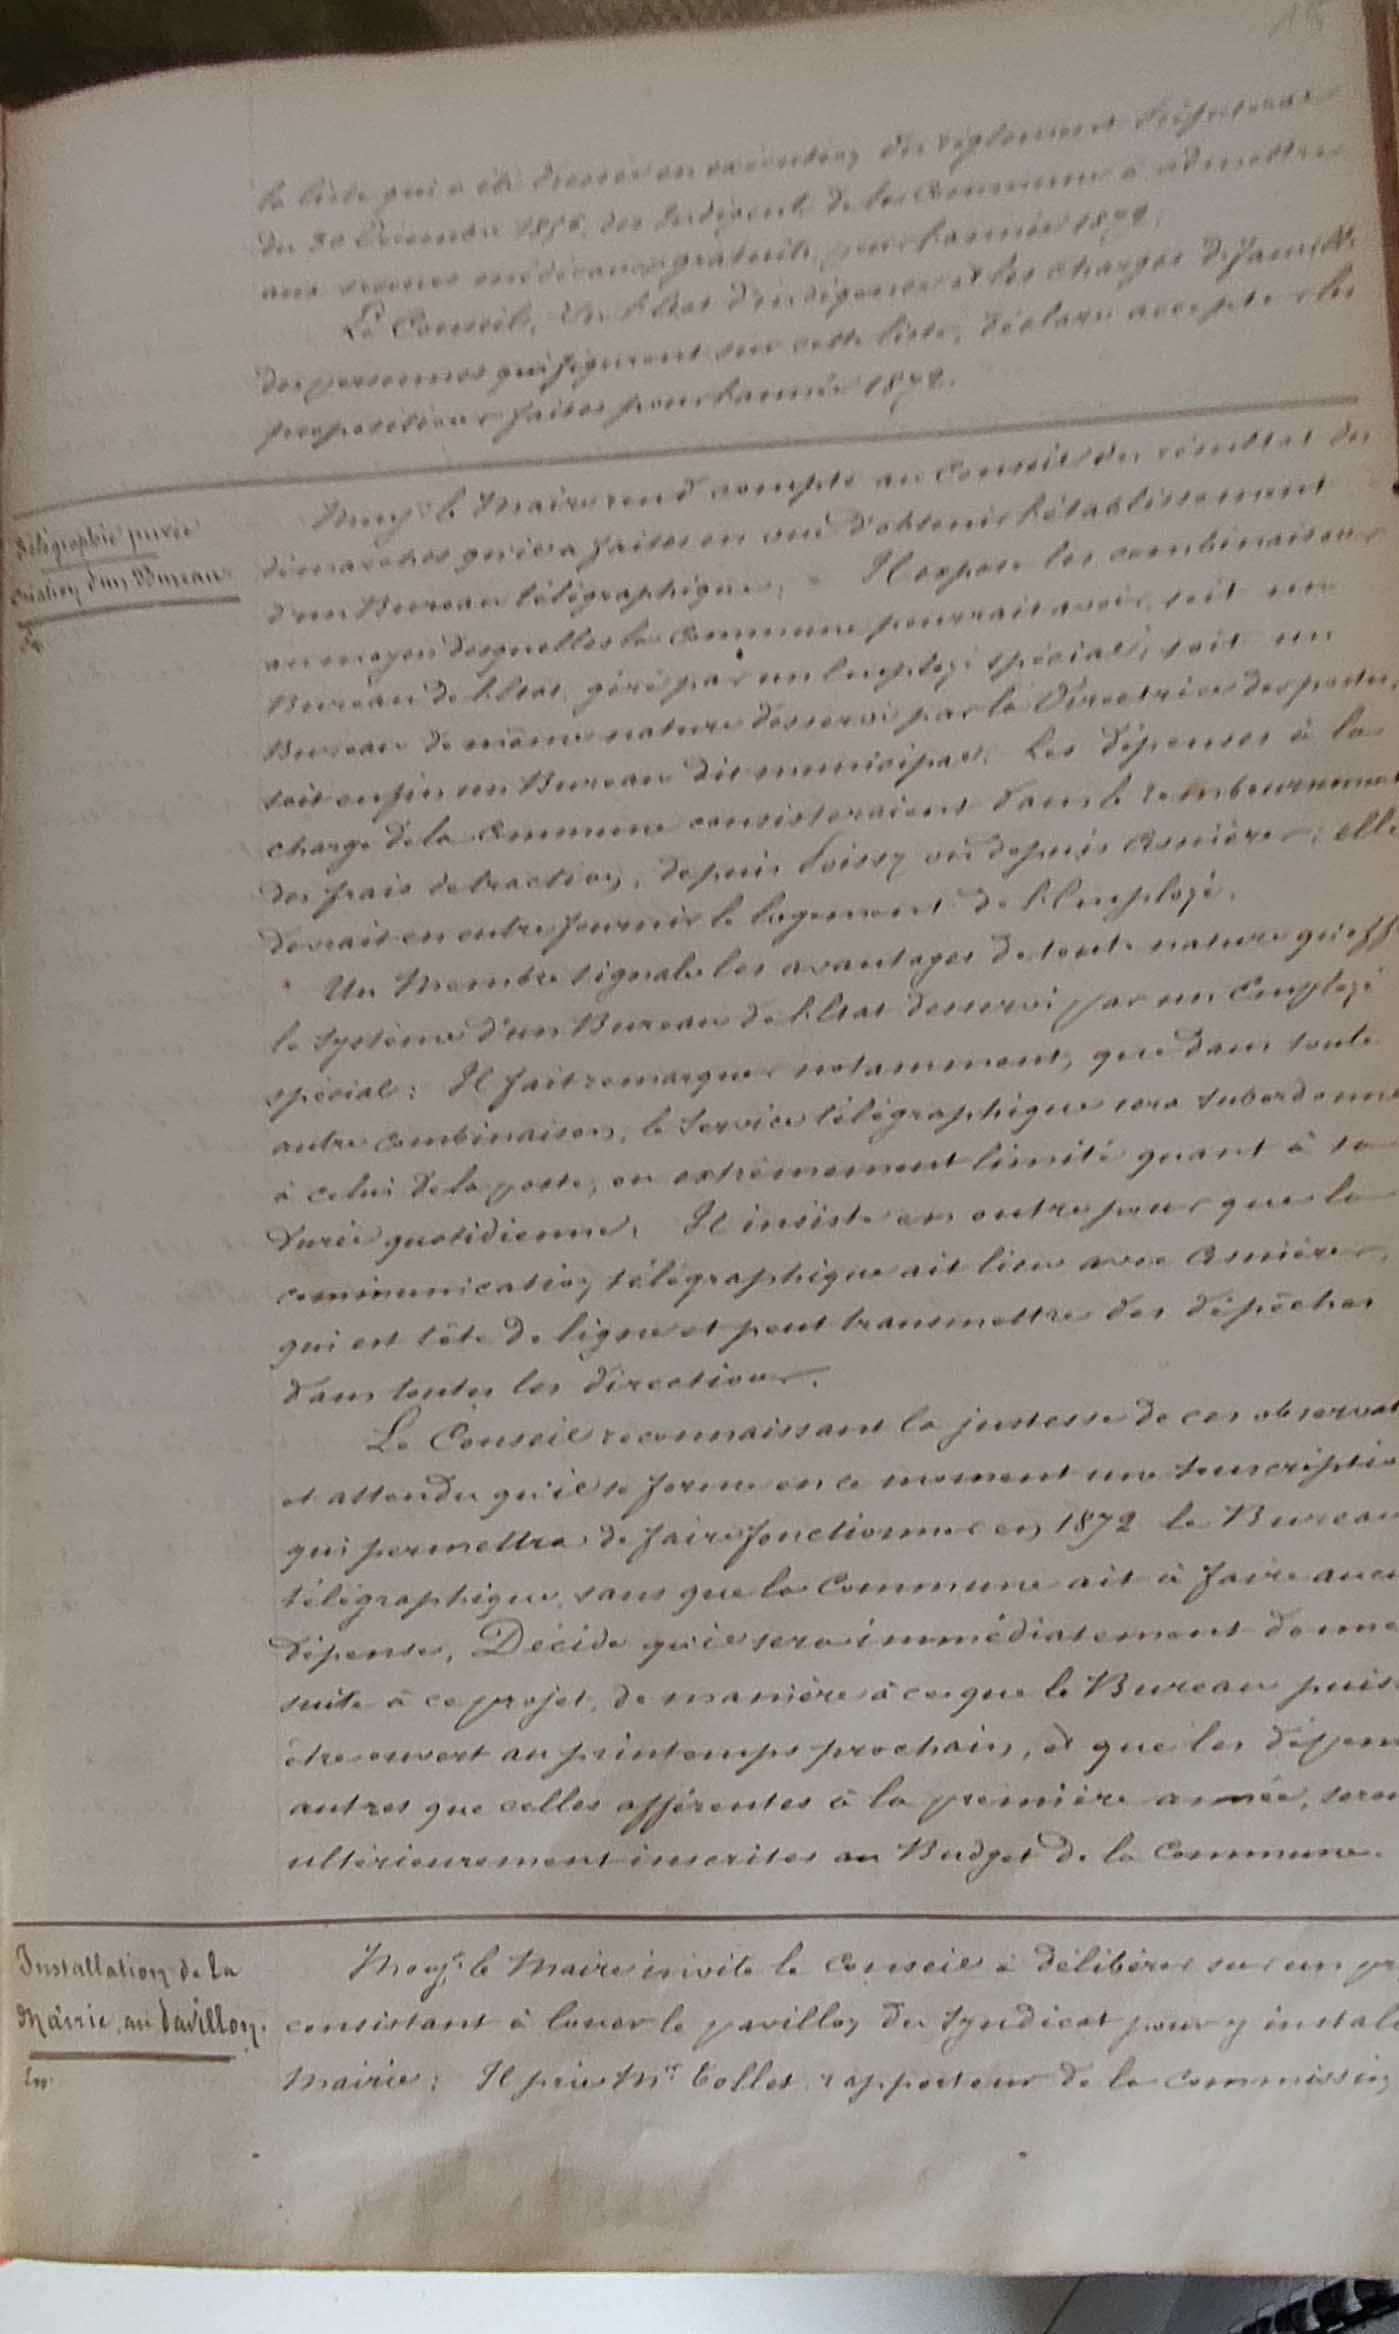 la liste qui a été dressée en exécution du règlement Préfectoral
du 30 Décembre 1856, des Indigents de la Commune à admettre
aux secours médicaux gratuits pour l'année 1872.
Le Conseil, Vu l'Etat d'indigence et les charges de famille
des personnes qui figurent sur cette liste, déclare accepter les
propositions faites pour l'année 1872.
Télégraphie privée
Création d'un Bureau
Monsr le Maire rend compte au Conseil du résultat des
démarches qu'il a faites en vue d'obtenir l'établissement
d'un Bureau télégraphique. Il expose les combinaisons
au moyen desquelles la Commune pourrait avoir, soit un
Bureau de l'Etat, géré par un Employé spécial, soit un
Bureau de même nature desservi par la Directrice des postes,
soit enfin un Bureau dit municipal. Les dépenses à la
charge de la Commune consisteraient dans le remboursement
des frais de traction, depuis Poissy ou depuis Asnières; elle
devrait en outre fournir le logement de l'Employé.
Un Membre signale les avantages de toute nature qu'off
le système d'un Bureau de l'Etat desservi par un Employé
spécial: Il fait remarquer notamment, que dans toute
autre combinaison, le service télégraphique sera subordonné
à celui de la poste, ou extrêmement limité quant à sa
durée quotidienne. Il insiste en outre pour que la
communication télégraphique ait lieu avec Asnières,
qui est tête de ligne et peut transmettre des dépêches
dans toutes les directions.
Le Conseil reconnaissant la justesse de ces observat
et attendu qu'il se forme en ce moment une Souscriptio
qui permettra de faire fonctionner en 1872 le Bureau
télégraphique, sans que la Commune ait à faire aucu
dépense, Décide qu'il sera immédiatement donné
suite à ce projet, de manière à ce que le Bureau puis
être ouvert au printemps prochain, et que les dépen
autres que celles afférentes à la première année, sero
ultérieurement inscrites au Budget de la Commune.
Installation de la
Mairie, au Pavillon.
Monsr le Maire invite le Conseil à délibérer sur un pr
consistant à louer le pavillon du Syndicat pour y install
Mairie: Il prie Mr Collet, rapporteur de la Commission